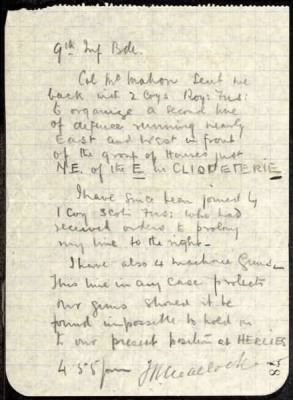 9th Inf Bde.
Col McMahon sent me
back with 2 Coys Roy: Fus:
to organize a second line
of defence running nearly
East and West in front
of the group of Houses just
N.E. of the E in CLIQUETERIE
I have since been joined by
1 Coy Scots Fus: who had
received orders to prolong
my line to the right.
I have also 4 machine Guns.
This line in any case protects
our guns should it be
found impossible to hold on
to our present position at HERLIES
4.55 pm